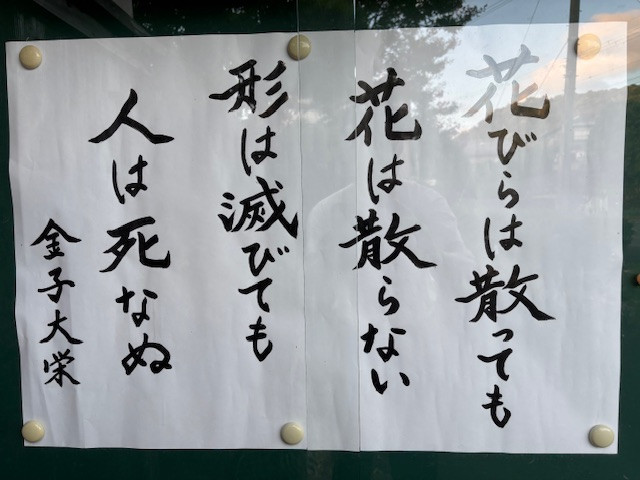 花びらは散っても
花は散らない
形は滅びても
人は死なぬ
金子大栄